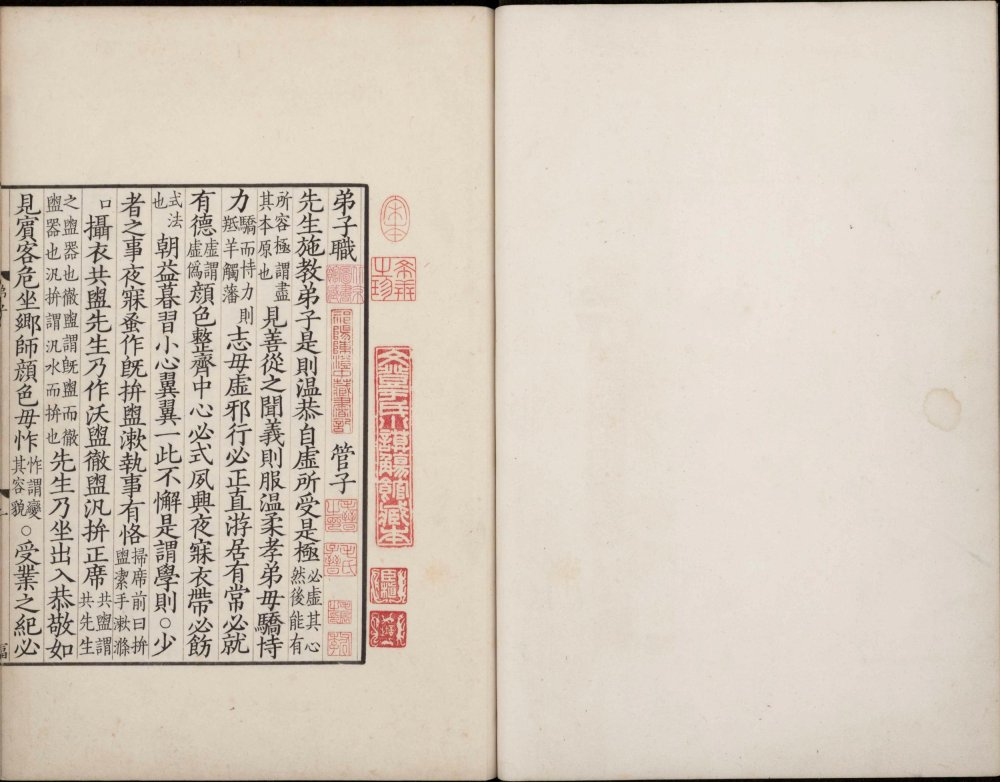 宋本
希世之珍
文登于氏小謨觴館藏本
弟子職 祁陽陳澄中藏書記 管子 毛晉之印 毛氏子晉
先生施教弟子是則温恭自虛所受是極必虛其心然後能有
所容極謂盡其本原也見善從之聞義則服温柔孝弟毋驕恃
力驕而恃力則羝羊觸藩志毋虛邪行必正直游居有常必就
有德虛謂虛僞顔色整齊中心必式夙興夜寐衣帶必飭
式法也朝益暮習小心翼翼一此不懈是謂學則○少
者之事夜寐蚤作旣拚盥漱執事有恪掃席前曰拚盥潔手漱滌
口攝衣共盥先生乃作沃盥徹盥汎拚正席共盥謂共先生
之盥器也徹盥謂旣盥而徹盥器也汎拚謂汎水而拚也先生乃坐出入恭敬如
見賓客危坐鄉師顔色毋怍怍謂變其容貌○受業之紀必